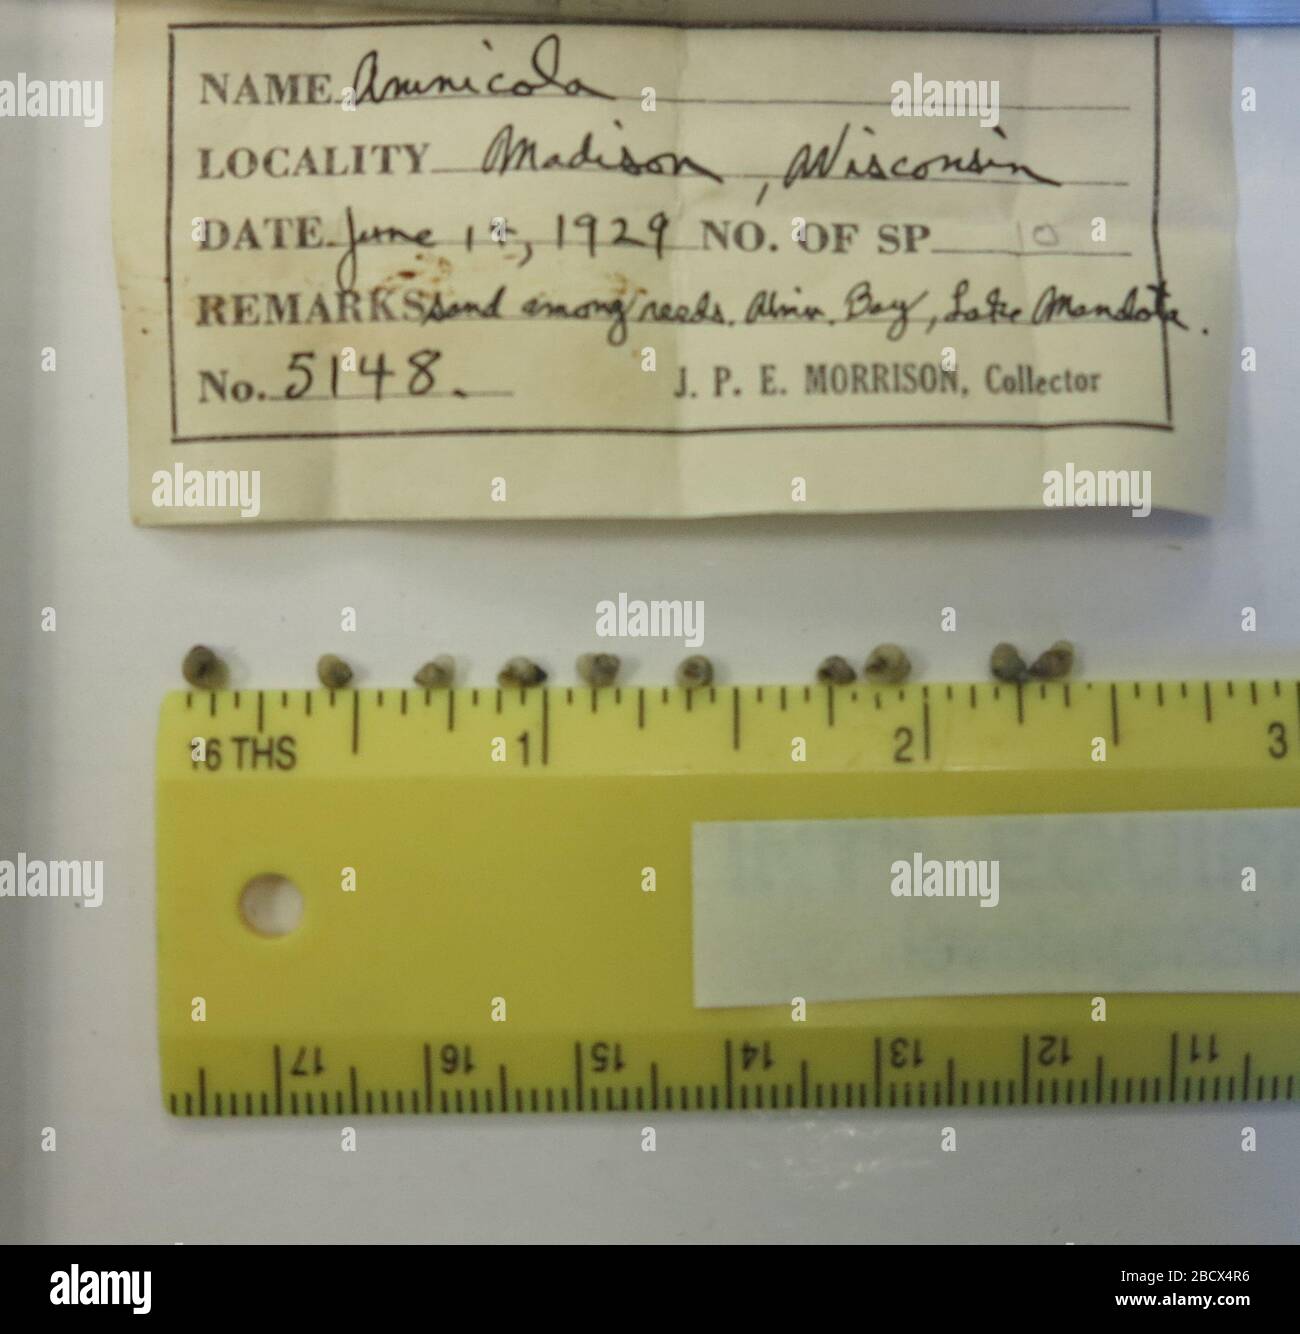 NAME Amnicola
LOCALITY Madison, Wisconsin
DATE June 1, 1929 NO. OF SP 10
REMARKS sand among reeds. Bay, Lake Mendota.
No. 5148. J. P. E. MORRISON, Collector
16 THS 1 2 3
17 16 15 14 13 12 11
alamy
Image ID: 2BCX4R6
www.alamy.com